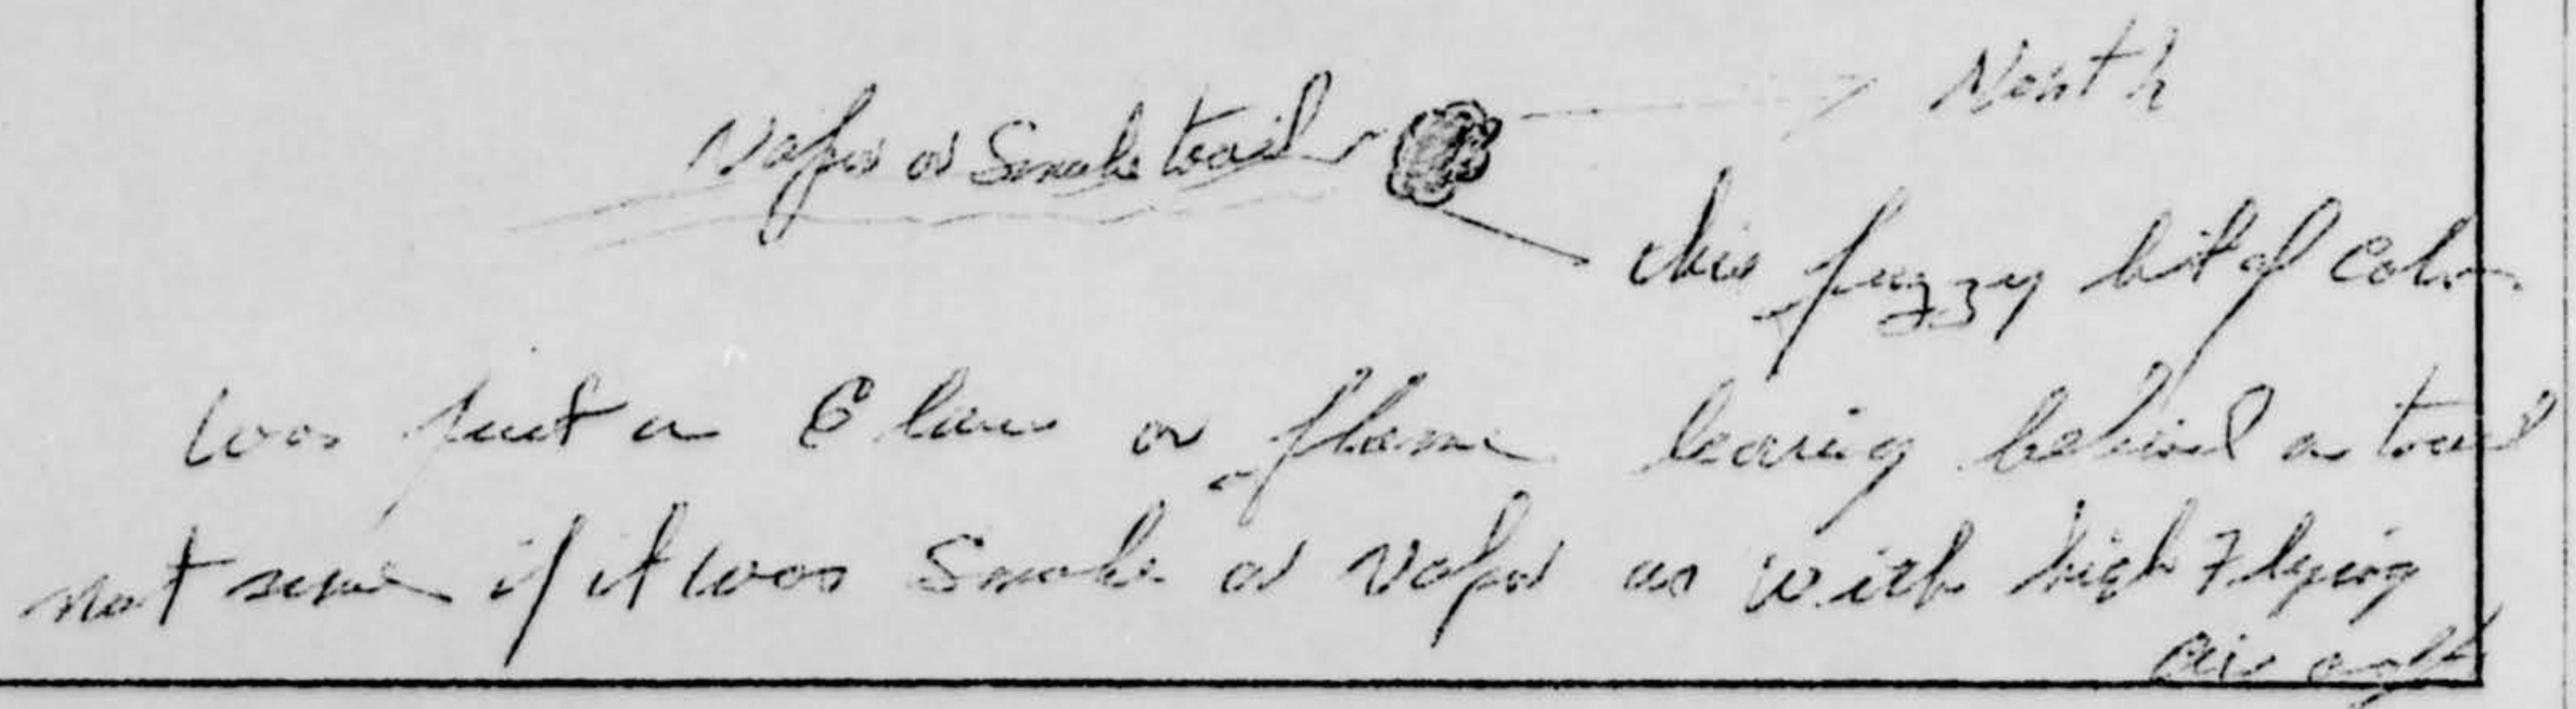 North
Vapor or Smoke trail
this fuzzy bit of Color
was just a Glow or flame leaving behind a trail
not sure if it was Smoke or Vapor as with high Flying
air craft